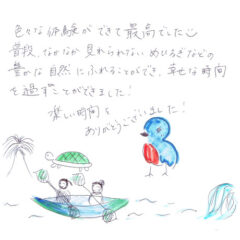 色々な体験ができて最高でした
普段、なかなか見れられないめひるぎなどの
豊かな自然にふれることができ、幸せな時間
を過すことができました!
楽しい時間を
ありがとうございました!